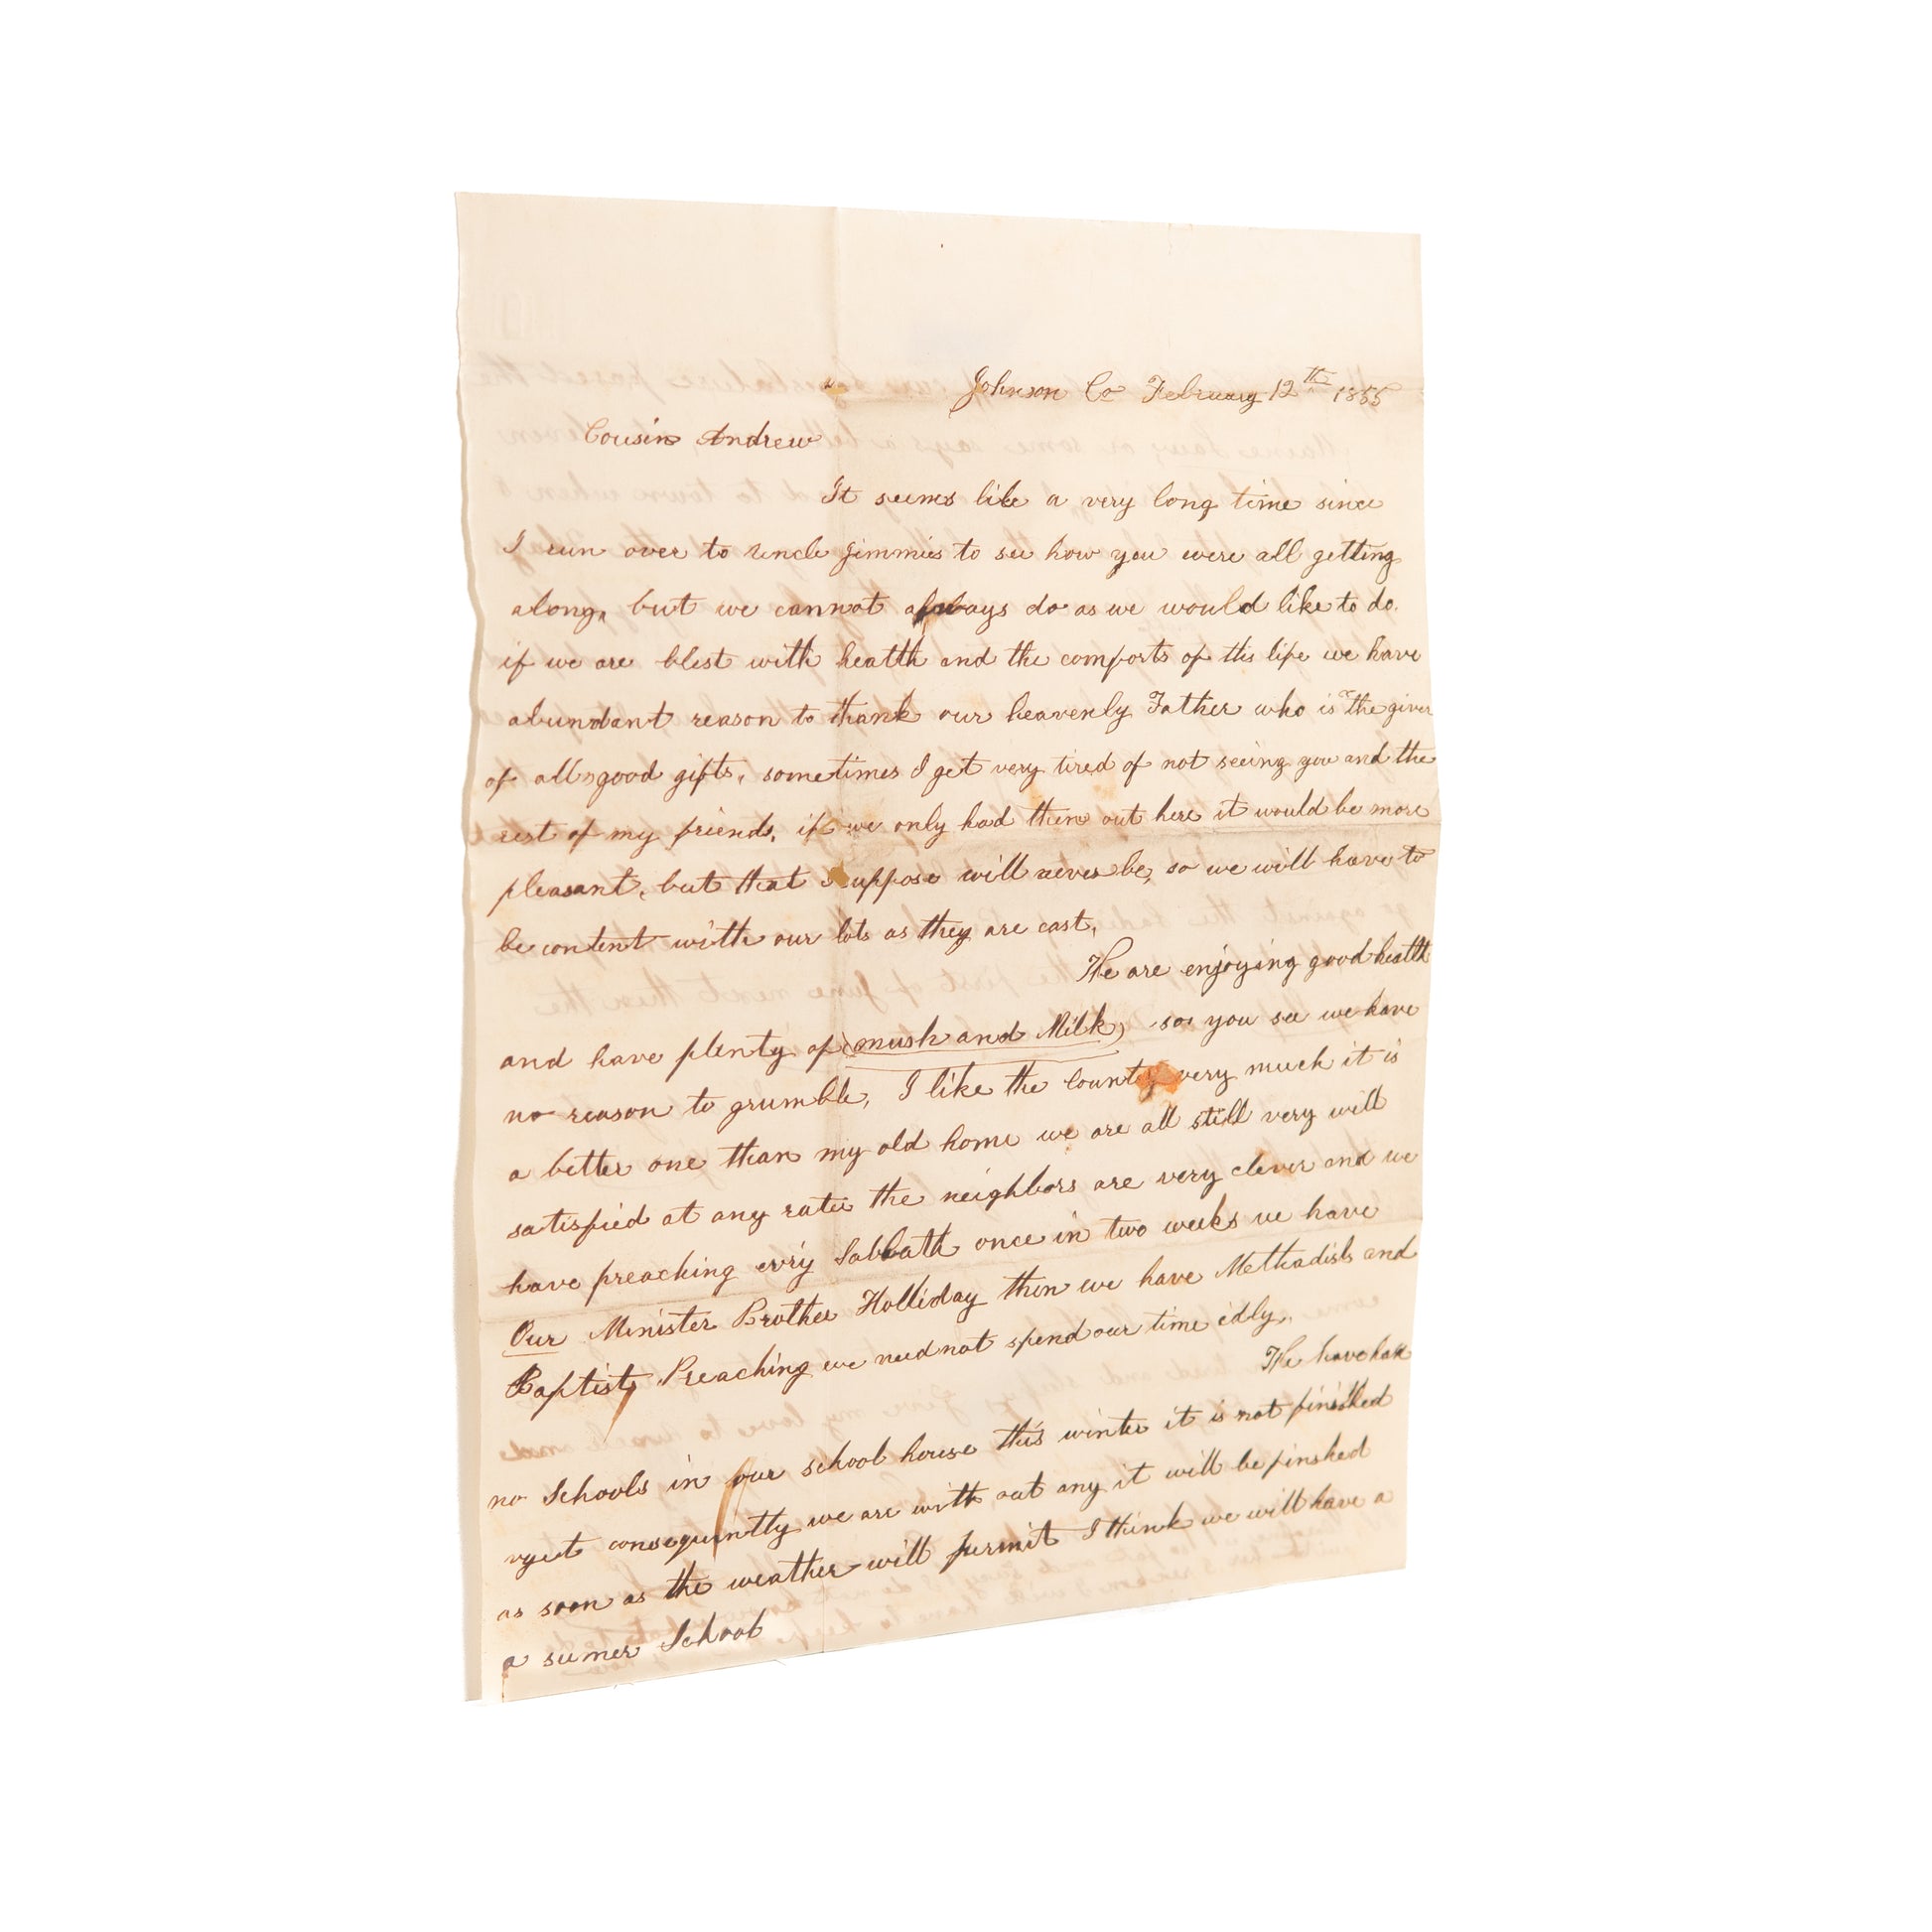 Johnson Co February 12th 1855
Cousin Andrew
It seems like a very long time since
I run over to uncle Jimmies to see how you were all getting
along, but we cannot always do as we would like to do.
if we are blest with health and the comforts of this life we have
abundant reason to thank our heavenly Father who is the giver
of all good gifts, sometimes I get very tired of not seeing you and the
rest of my friends, if we only had them out here it would be more
pleasant, but that I suppose will never be, so we will have to
be content with our lots as they are cast,
We are enjoying good health
and have plenty of (mush and Milk) so you see we have
no reason to grumble, I like the County very much it is
a better one than my old home we are all still very well
satisfied at any rate the neighbors are very clever and we
have preaching evry Sabbath once in two weeks we have
Our Minister Brother Holliday then we have Methadists and
Baptist Preaching we need not spend our time idly,
We have had
no Schools in our school house this winter it is not finished
yet consequently we are with out any it will be finshed
as soon as the weather will permit I think we will have a
a sumer School